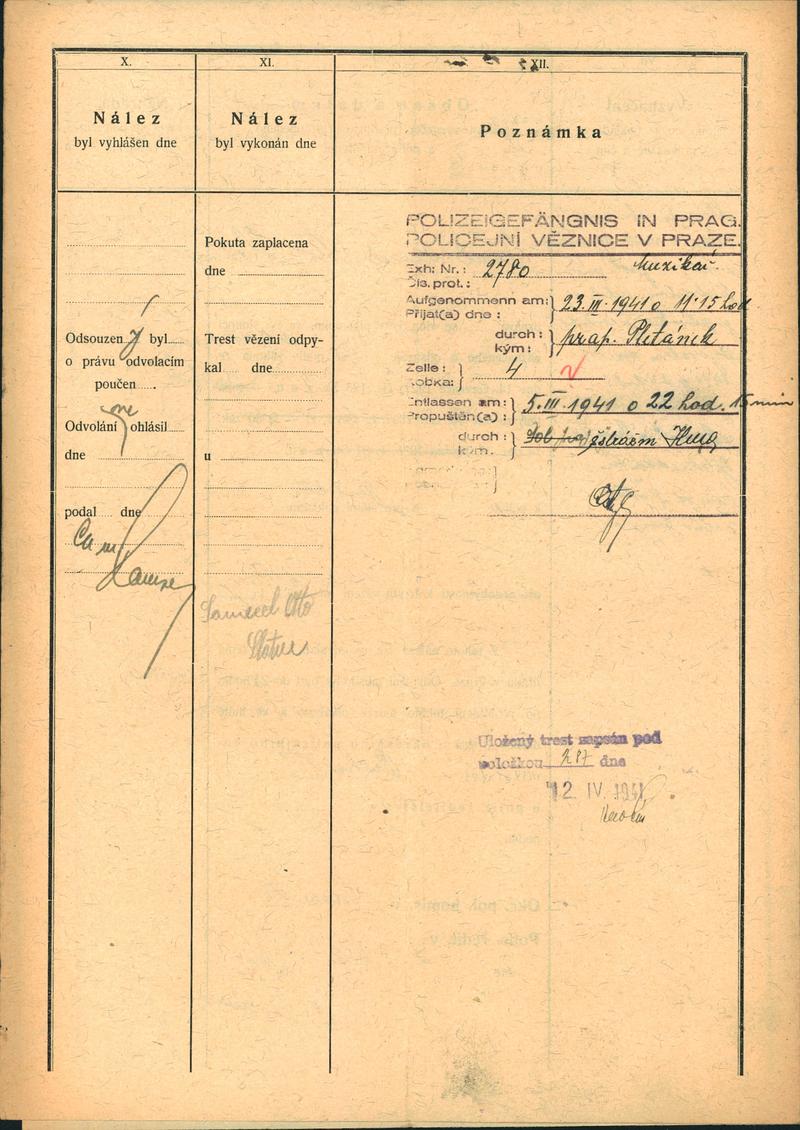 X.
Nález
byl vyhlášen dne
Odsouzen byl
o právu odvolacím
poučen
ne
Odvolání ohlásil
dne
podal dne
XI.
Nález
byl vykonán dne
Pokuta zaplacena
dne
Trest vězení odpy-
kal dne
u
Otto
XII.
Poznámka
POLIZEIGEFÄNGNIS IN PRAG.
POLICEJNÍ VĚZNICE V PRAZE.
Exh: Nr.: 2780 Muzikář
Čís. prot.:
Aufgenommenn am: 23. III. 1941 o 11.15 hod
Přijat(a) dne:
durch: prap. Pletánek
kým:
Zelle: 4
Kobka:
Entlassen am: 5. III. 1941 o 22 hod. 15 min
Propuštěn(a):
durch:
kým:
Uložený trest zapsán pod
položkou 287 dne
12. IV. 1941